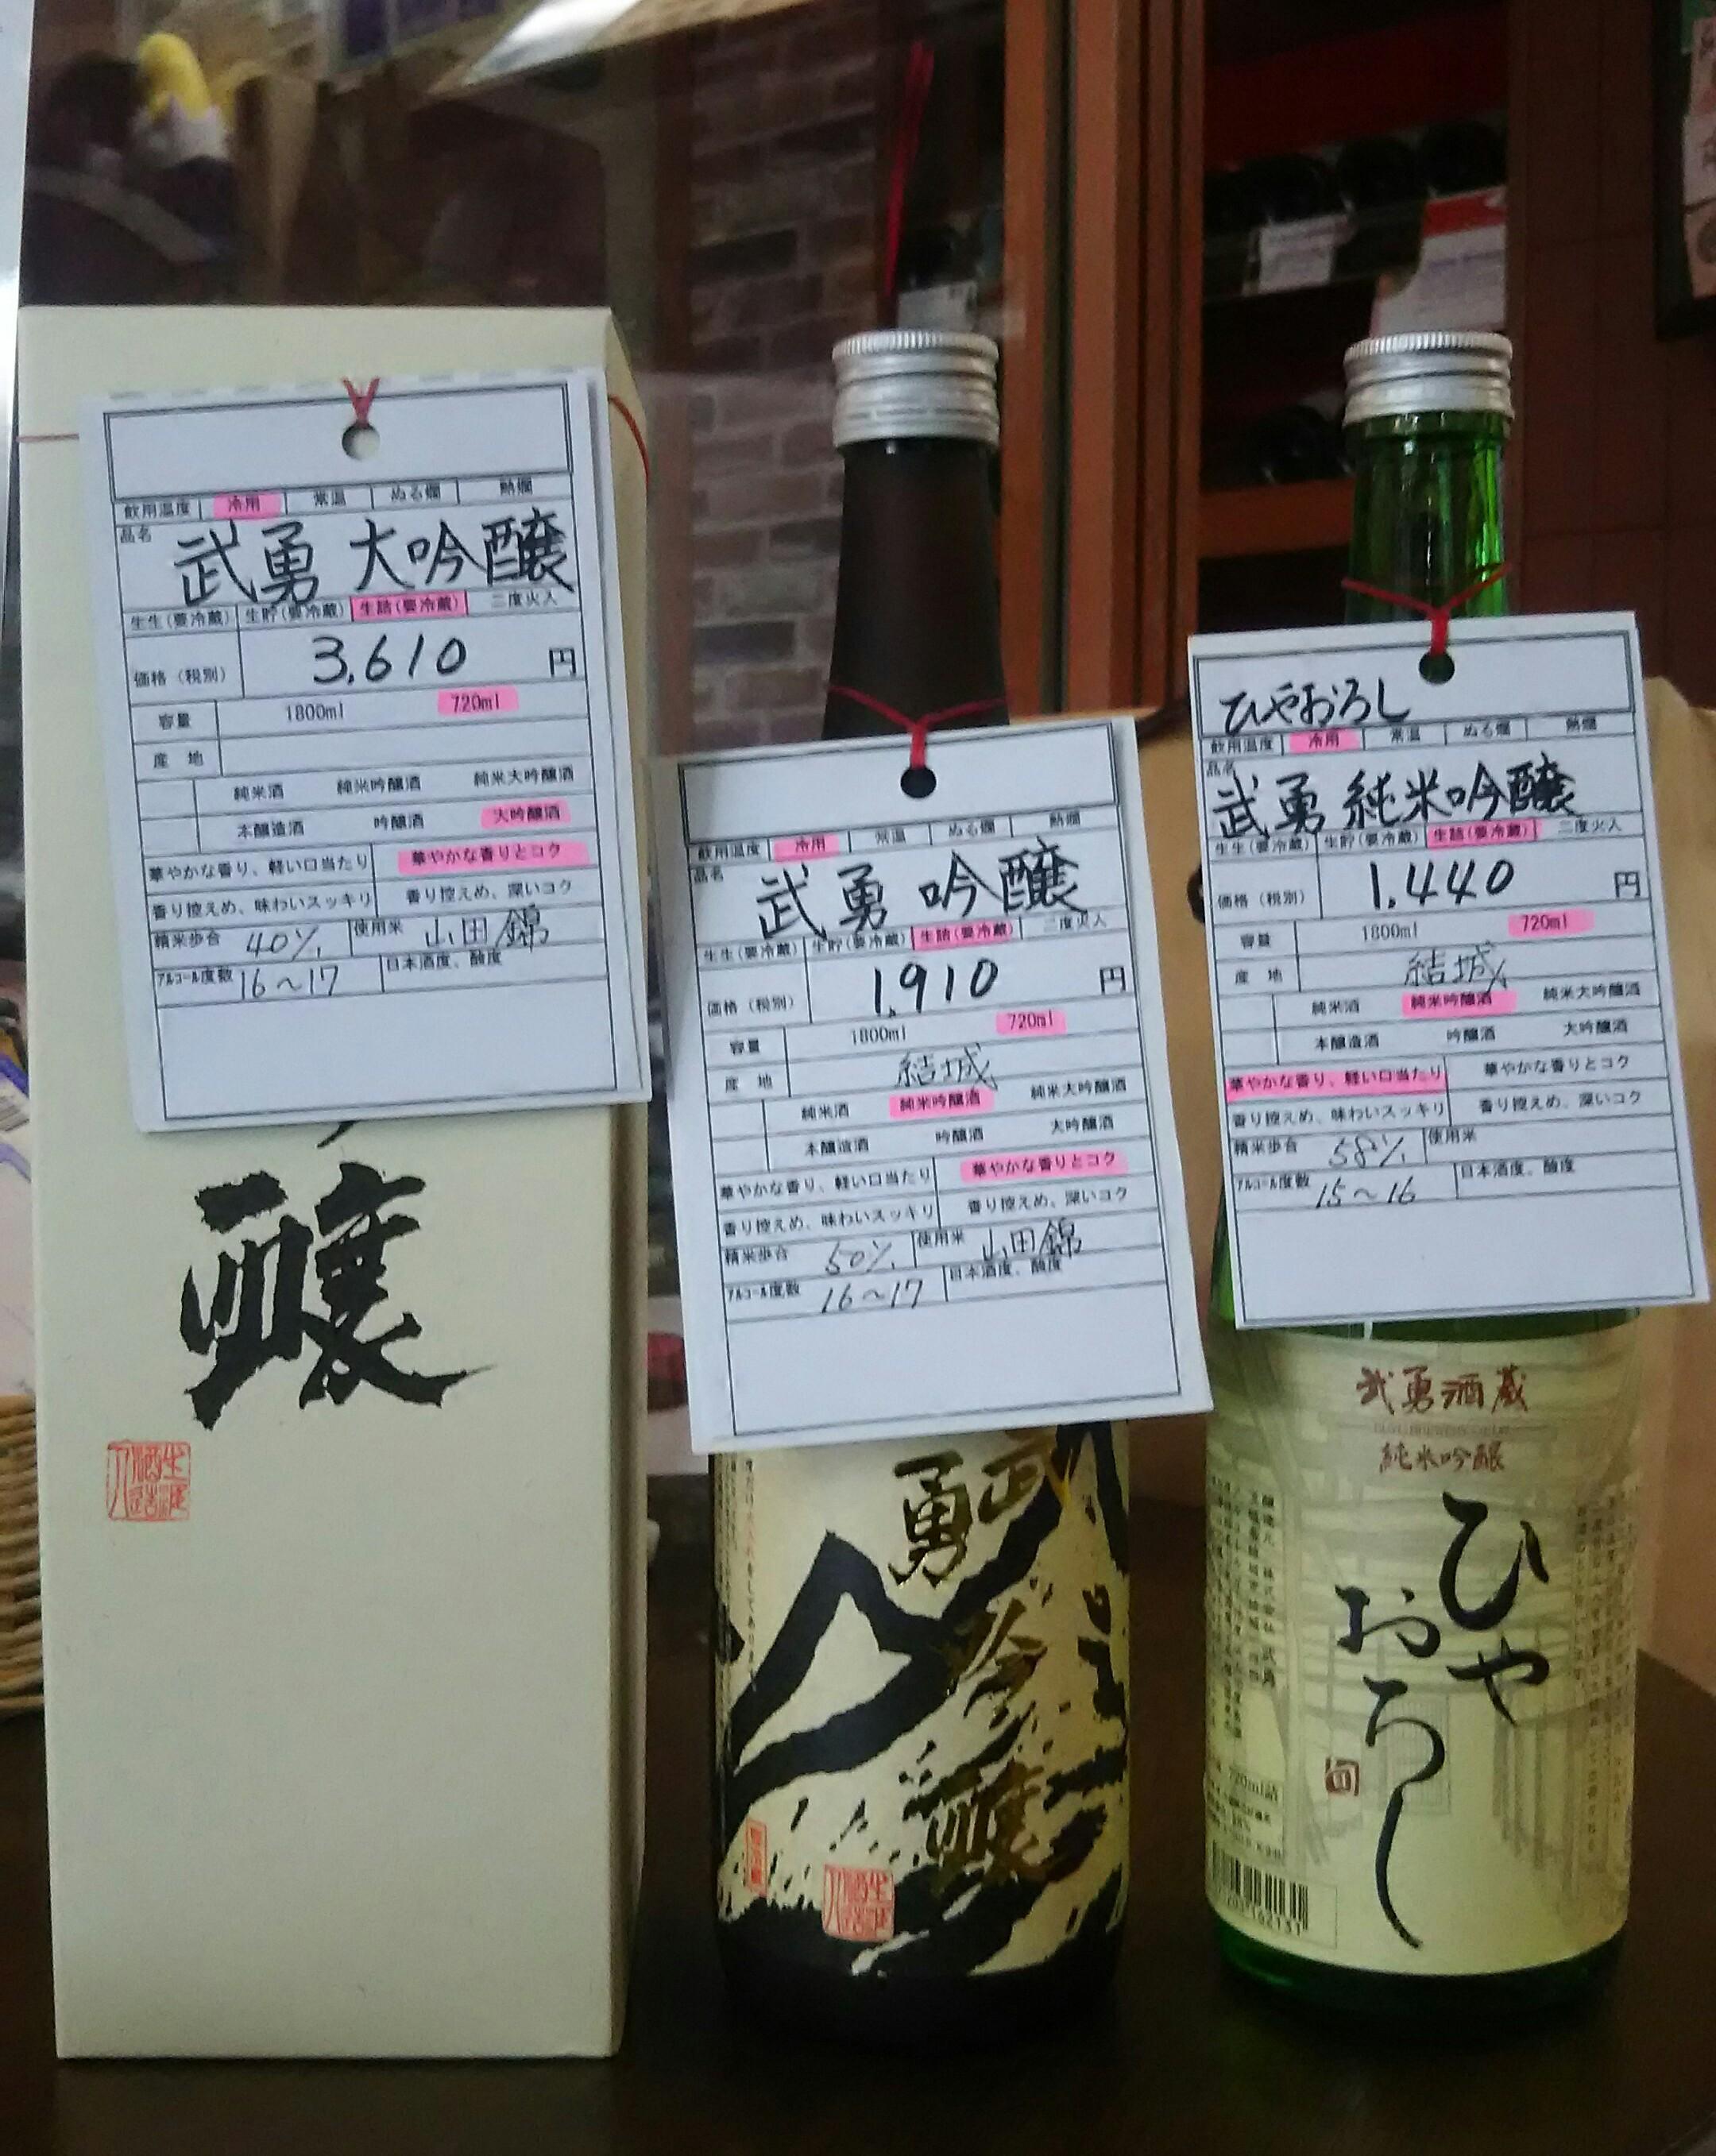 飲用温度 冷用 常温 ぬる燗 熱燗
品名
武勇 大吟醸
生生(要冷蔵) 生貯(要冷蔵) 生詰(要冷蔵) 二度火入
価格(税別) 3,610 円
容量 1800ml 720ml
産 地
純米酒 純米吟醸酒 純米大吟醸酒
本醸造酒 吟醸酒 大吟醸酒
華やかな香り、軽い口当たり 華やかな香りとコク
香り控えめ、味わいスッキリ 香り控えめ、深いコク
精米歩合 40% 使用米 山田錦
アルコール度数 16〜17 日本酒度、酸度
醸
飲用温度 冷用 常温 ぬる燗 熱燗
品名
武勇 吟醸
生生(要冷蔵) 生貯(要冷蔵) 生詰(要冷蔵) 二度火入
価格(税別) 1,910 円
容量 1800ml 720ml
産 地 結城
純米酒 純米吟醸酒 純米大吟醸酒
本醸造酒 吟醸酒 大吟醸酒
華やかな香り、軽い口当たり 華やかな香りとコク
香り控えめ、味わいスッキリ 香り控えめ、深いコク
精米歩合 50% 使用米 山田錦
アルコール度数 16〜17 日本酒度、酸度
武勇
吟醸
ひやおろし
飲用温度 冷用 常温 ぬる燗 熱燗
品名
武勇 純米吟醸
生生(要冷蔵) 生貯(要冷蔵) 生詰(要冷蔵) 二度火入
価格(税別) 1,440 円
容量 1800ml 720ml
産 地 結城
純米酒 純米吟醸酒 純米大吟醸酒
本醸造酒 吟醸酒 大吟醸酒
華やかな香り、軽い口当たり 華やかな香りとコク
香り控えめ、味わいスッキリ 香り控えめ、深いコク
精米歩合 58% 使用米
アルコール度数 15〜16 日本酒度、酸度
武勇酒蔵
純米吟醸
ひや
おろし